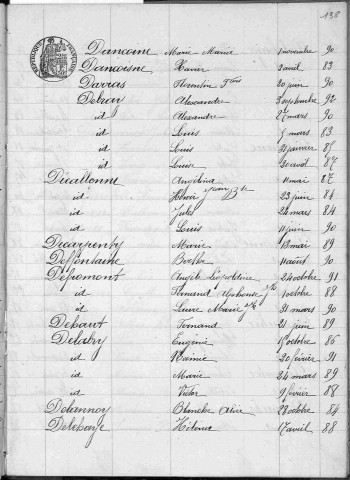 138
RÉPUBLIQUE FRANÇAISE
Dancoine Marie Marie 1 novembre 90
Dancoisne Xavier 2 avril 83
Darras Florentin Fçois 20 juin 90
Delray Alexandre 3 septembre 92
id Alexandre 27 mars 90
id Louis 5 mars 83
id Louis 31 janvier 85
id Louise 20 août 87
Dicallonne Angélina 11 mai 87
id Henri Jean Bte 23 juin 86
id Jules 22 mars 84
id Louis 11 juin 90
Dicarpenty Marie 13 mai 89
Deffontaine Berthe 11 août 90
Defromont Angèle Léopoldine 24 octobre 91
id Fernand Alphonse 1 octobre 88
id Laure Marie 31 mars 90
Dehaut Fernand 21 juin 89
Delaby Eugénie 15 octobre 86
id Noémie 20 février 91
id Marie 24 mars 89
id Victor 9 février 88
Delannoy Blanche Alice 28 octobre 84
Delehaye Hélène 17 avril 88